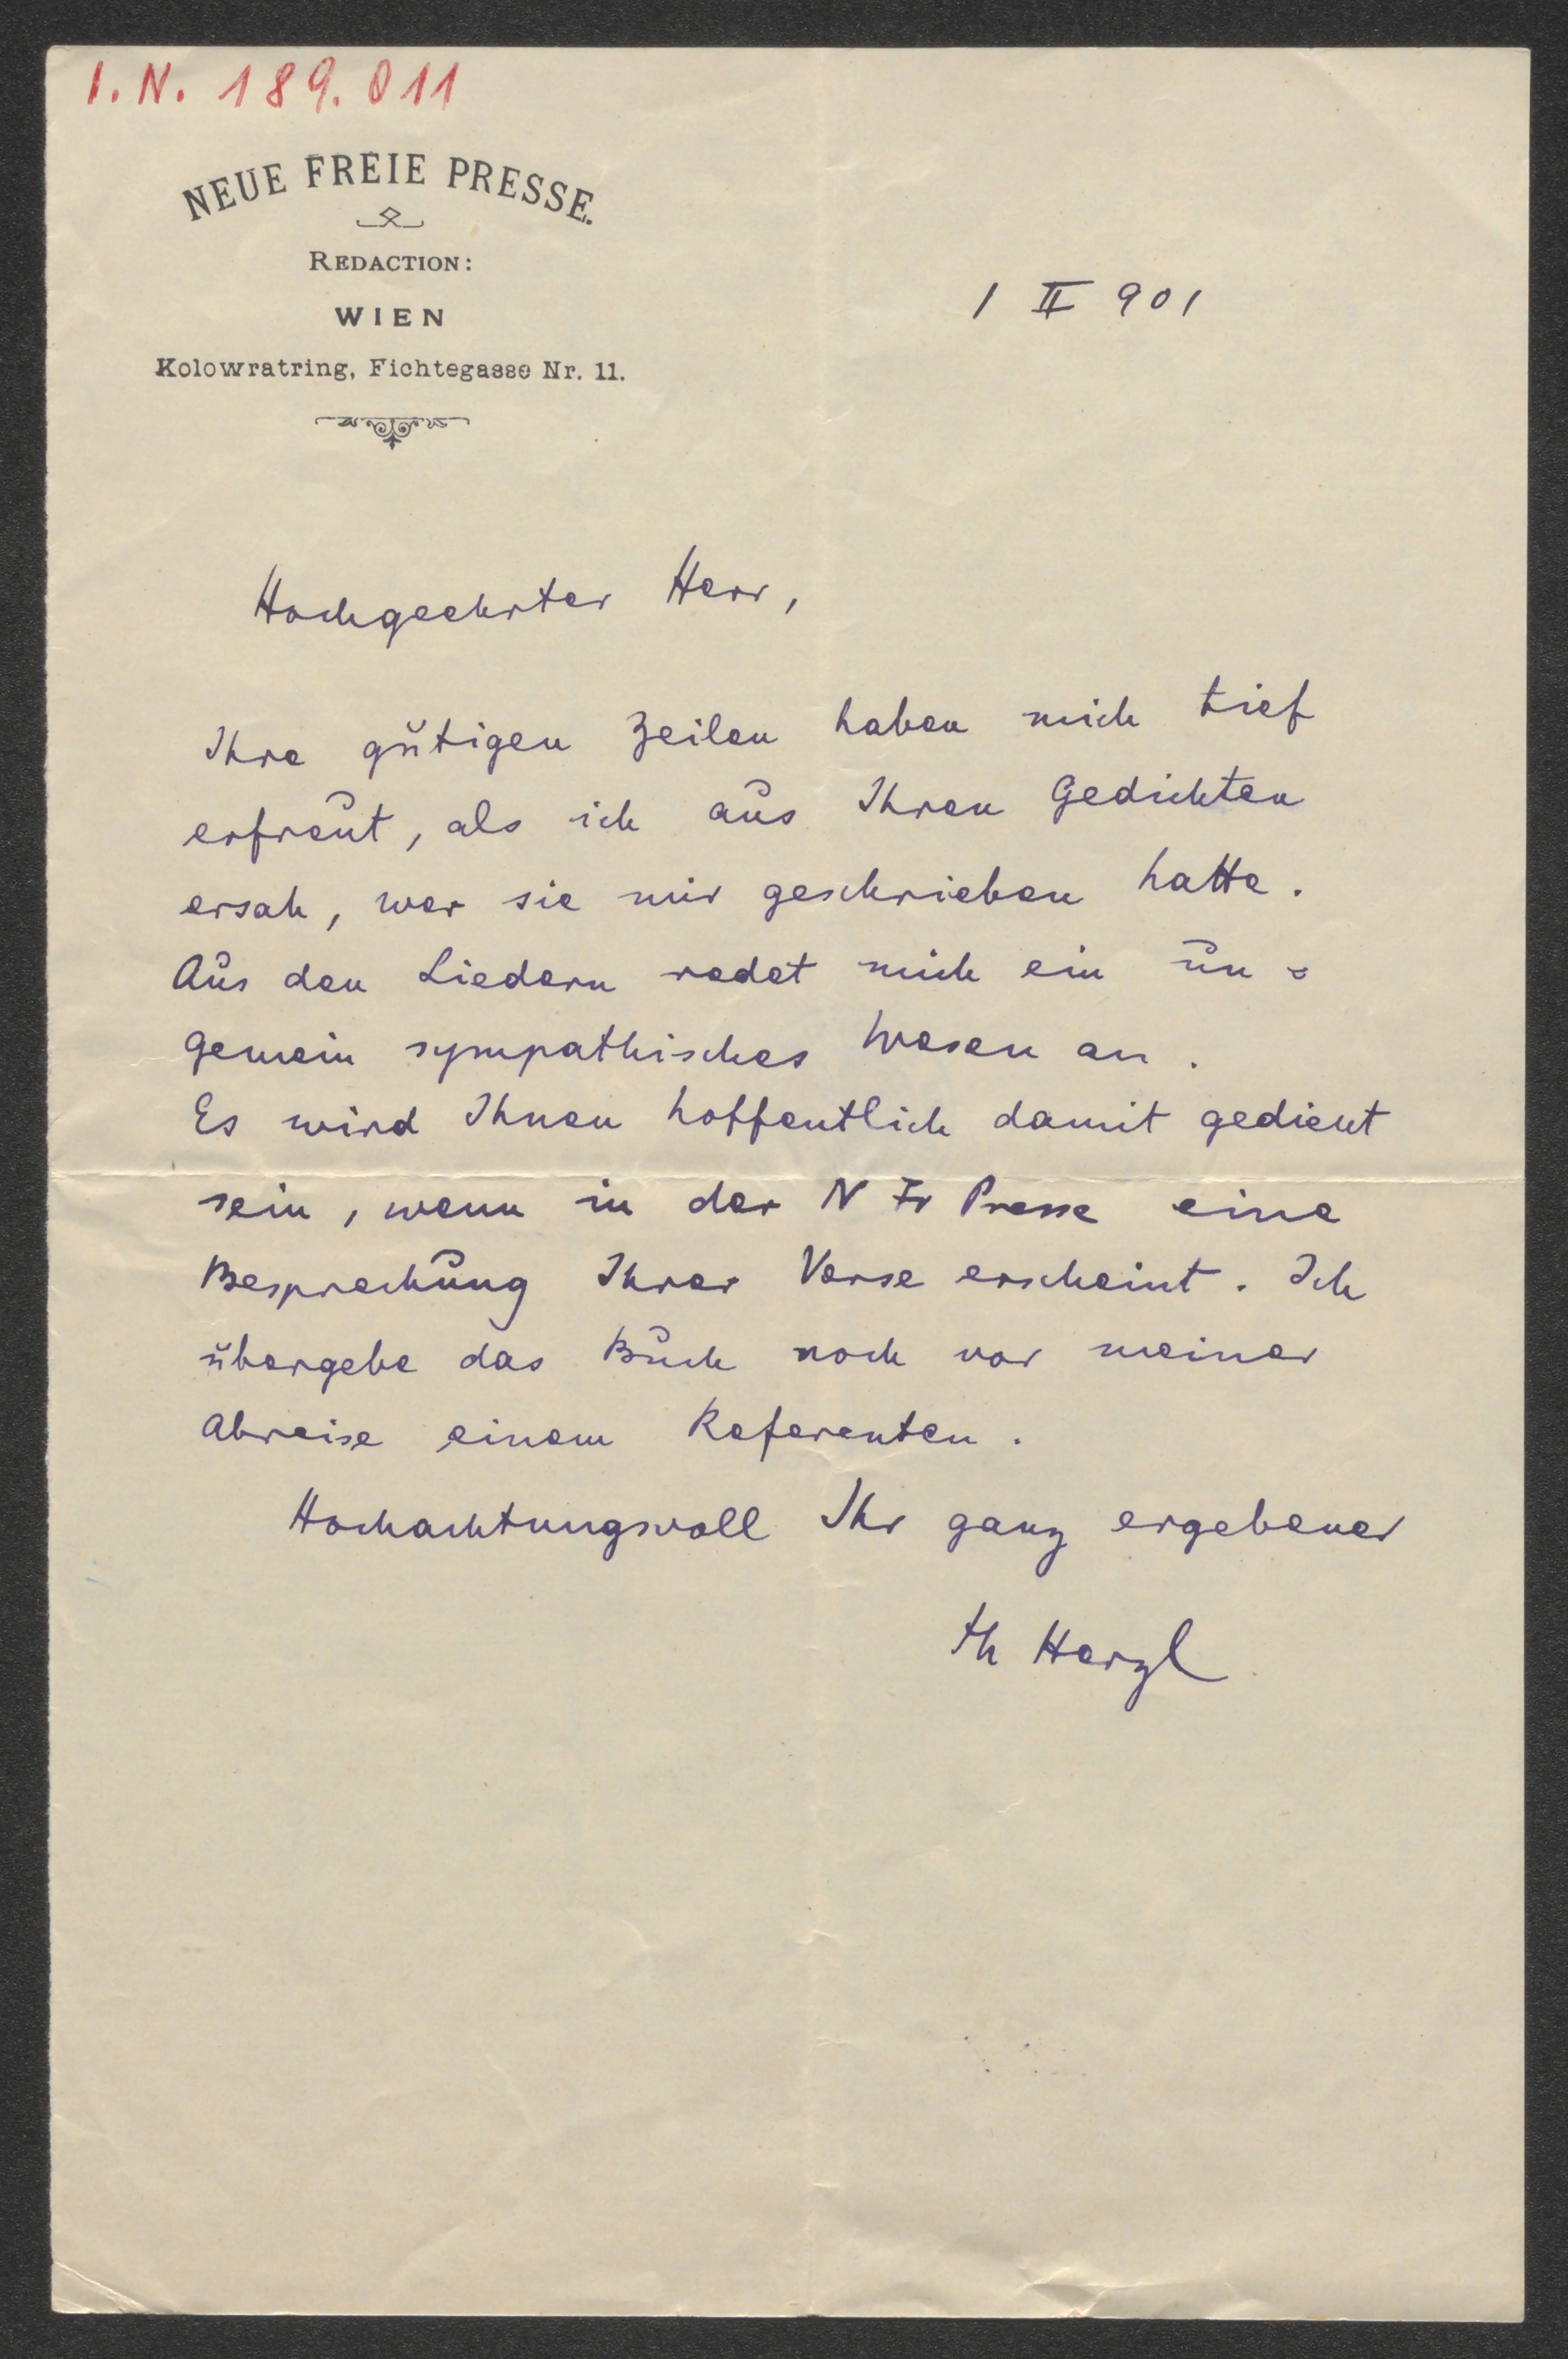 I.N. 189.011
NEUE FREIE PRESSE.
REDACTION:
WIEN
Kolowratring, Fichtegasse Nr. 11.
1 II 901
Hochgeehrter Herr,
Ihre gütigen Zeilen haben mich tief
erfreut, als ich aus Ihren Gedichten
ersah, wer sie mir geschrieben hatte.
Aus den Liedern redet mich ein un=
gemein sympathisches Wesen an.
Es wird Ihnen hoffentlich damit gedient
sein, wenn in der N Fr Presse eine
Besprechung Ihrer Verse erscheint. Ich
übergebe das Buch noch vor meiner
Abreise einem Referenten.
Hochachtungsvoll Ihr ganz ergebener
Th Herzl